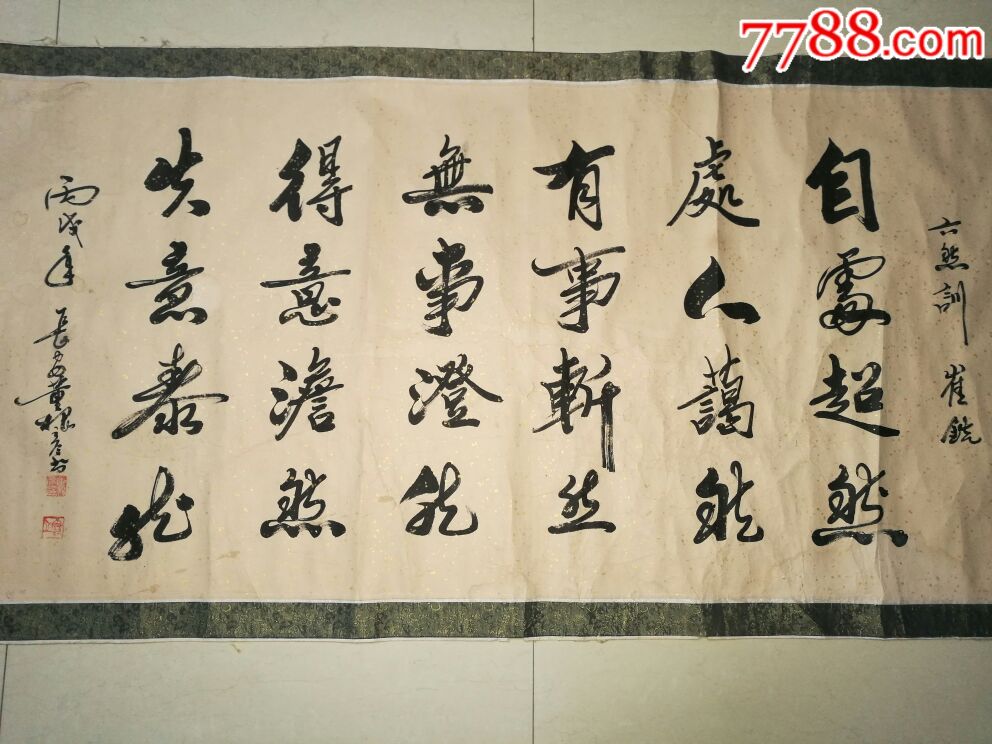 7788.com
六然訓 崔銑
自處超然
處人藹然
有事斬然
無事澄然
得意澹然
失意泰然
丙戌年 長安黄根彦書